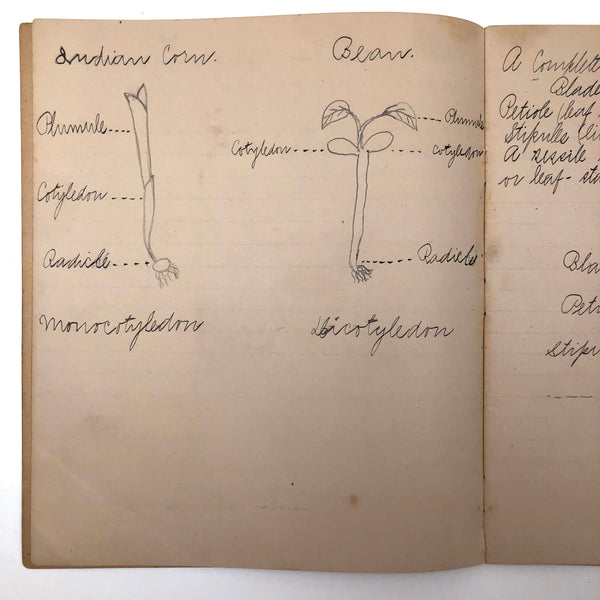 Indian Corn.
Plumule....
Cotyledon....
Radicle....
Monocotyledon
Bean.
....Plumule
Cotyledon.... ....cotyledon
....Radicle
Dicotyledon
A Complet
Blade
Petiole (leaf
Stipules (li
A sessile
or leaf-st
Bla
Peti
Stipu